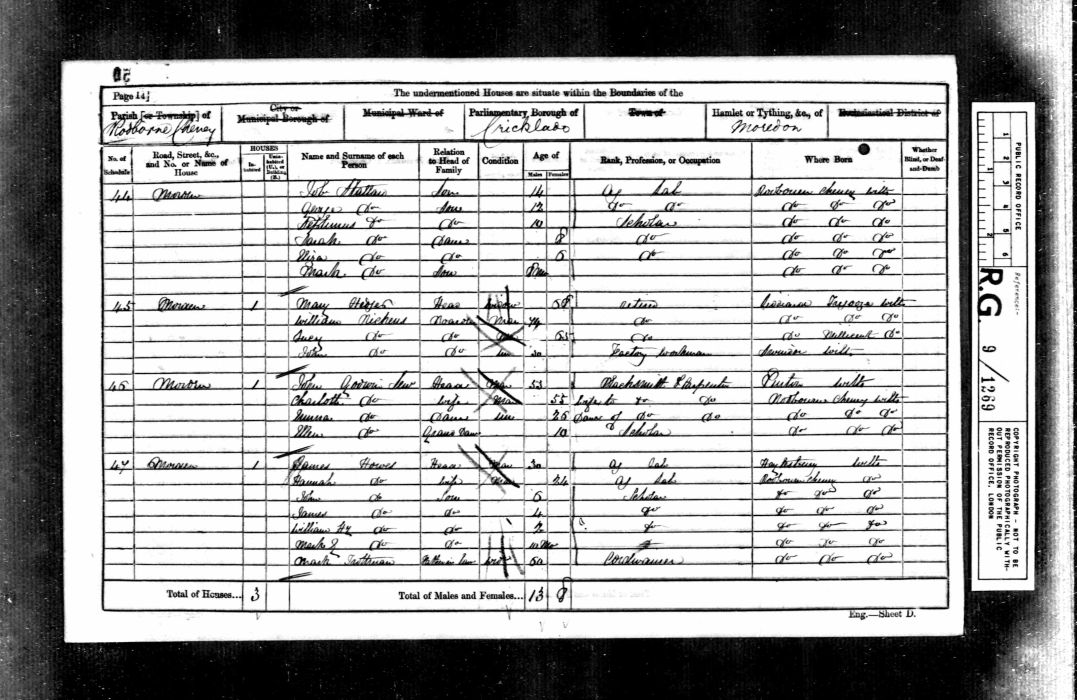 50
Page 14]
The undermentioned Houses are situate within the Boundaries of the
Parish [or Township] of
Rodborne Cheney
City or
Municipal Borough of
Municipal Ward of
Parliamentary Borough of
Cricklade
Town of
Hamlet or Tything, &c., of
Moredon
Ecclesiastical District of
No. of Schedule
Road, Street, &c., and No. or Name of House
HOUSES
Inhabited
Uninhabited (U.), or Building (B.)
Name and Surname of each Person
Relation to Head of Family
Condition
Age of
Males
Females
Rank, Profession, or Occupation
Where Born
Whether Blind, or Deaf-and-Dumb
44 Job Son 14 Ag Lab Cheney Wilts
George do Son 12 do do do do do
do do 10 Scholar do do do
Sarah do 8 do do do do
do do 6 do do do do
Mark do Son 8 Mo do do do
45 1 Mary Head 58 Wilts
William Dickens Boarder Mar do do do do
Lucy do do do do do
John do do Un 20 Factory Workman Wilts
46 1 John Godwin Senr Head Mar 53 Blacksmith & Carpenter Purton Wilts
Charlotte do Wife Mar 55 Wife to do do Cheney Wilts
do Un 26 of do do do do do
Ellen do 10 Scholar do do do
47 1 James Howes Head Mar 30 Ag Lab Wilts
Hannah do Wife Mar 24 Ag Lab Cheney do
John do Son 6 Scholar do do do
James do do 4 do do do do
William Hy do do 2 do do do do
Mark do do 10 Mo do do do
Mark Trottman Father in law 60 Cordwainer do do do
Total of Houses... 3
Total of Males and Females... 13 8
Eng.—Sheet D.
PUBLIC RECORD OFFICE
1 2 3 4 5 6
1 2
Reference:-
R.G. 9/1269
COPYRIGHT PHOTOGRAPH - NOT TO BE
REPRODUCED PHOTOGRAPHICALLY WITH-
OUT PERMISSION OF THE PUBLIC
RECORD OFFICE, LONDON